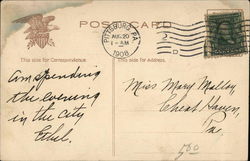 POST CARD
PITTSBURG, PA.
AUG 20
1-AM
1908
This side for Correspondence.
This side for Address.
Am spending
the evening
in the City
Ethel.
Miss Mary Malloy
Cheat Haven,
Pa.